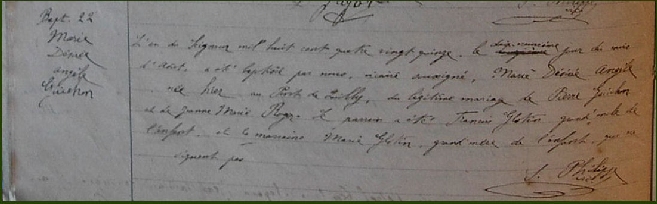 Bapt. 22
Marie
Désiré
Angèle
Guichon
L'an du Seigneur mil huit cent quatre vingt quinze le jour du mois
d'Août, a été baptisée par nous, vicaire soussigné, Marie Désirée Angèle
née hier au Port de du légitime mariage de Pierre Guichon
et de Jeanne Marie Le parrain a été Francis Glotin, grand'oncle de
l'enfant et la marraine Marie Glotin, grand'mère de l'enfant, qui ne
signent pas
S. Philippe